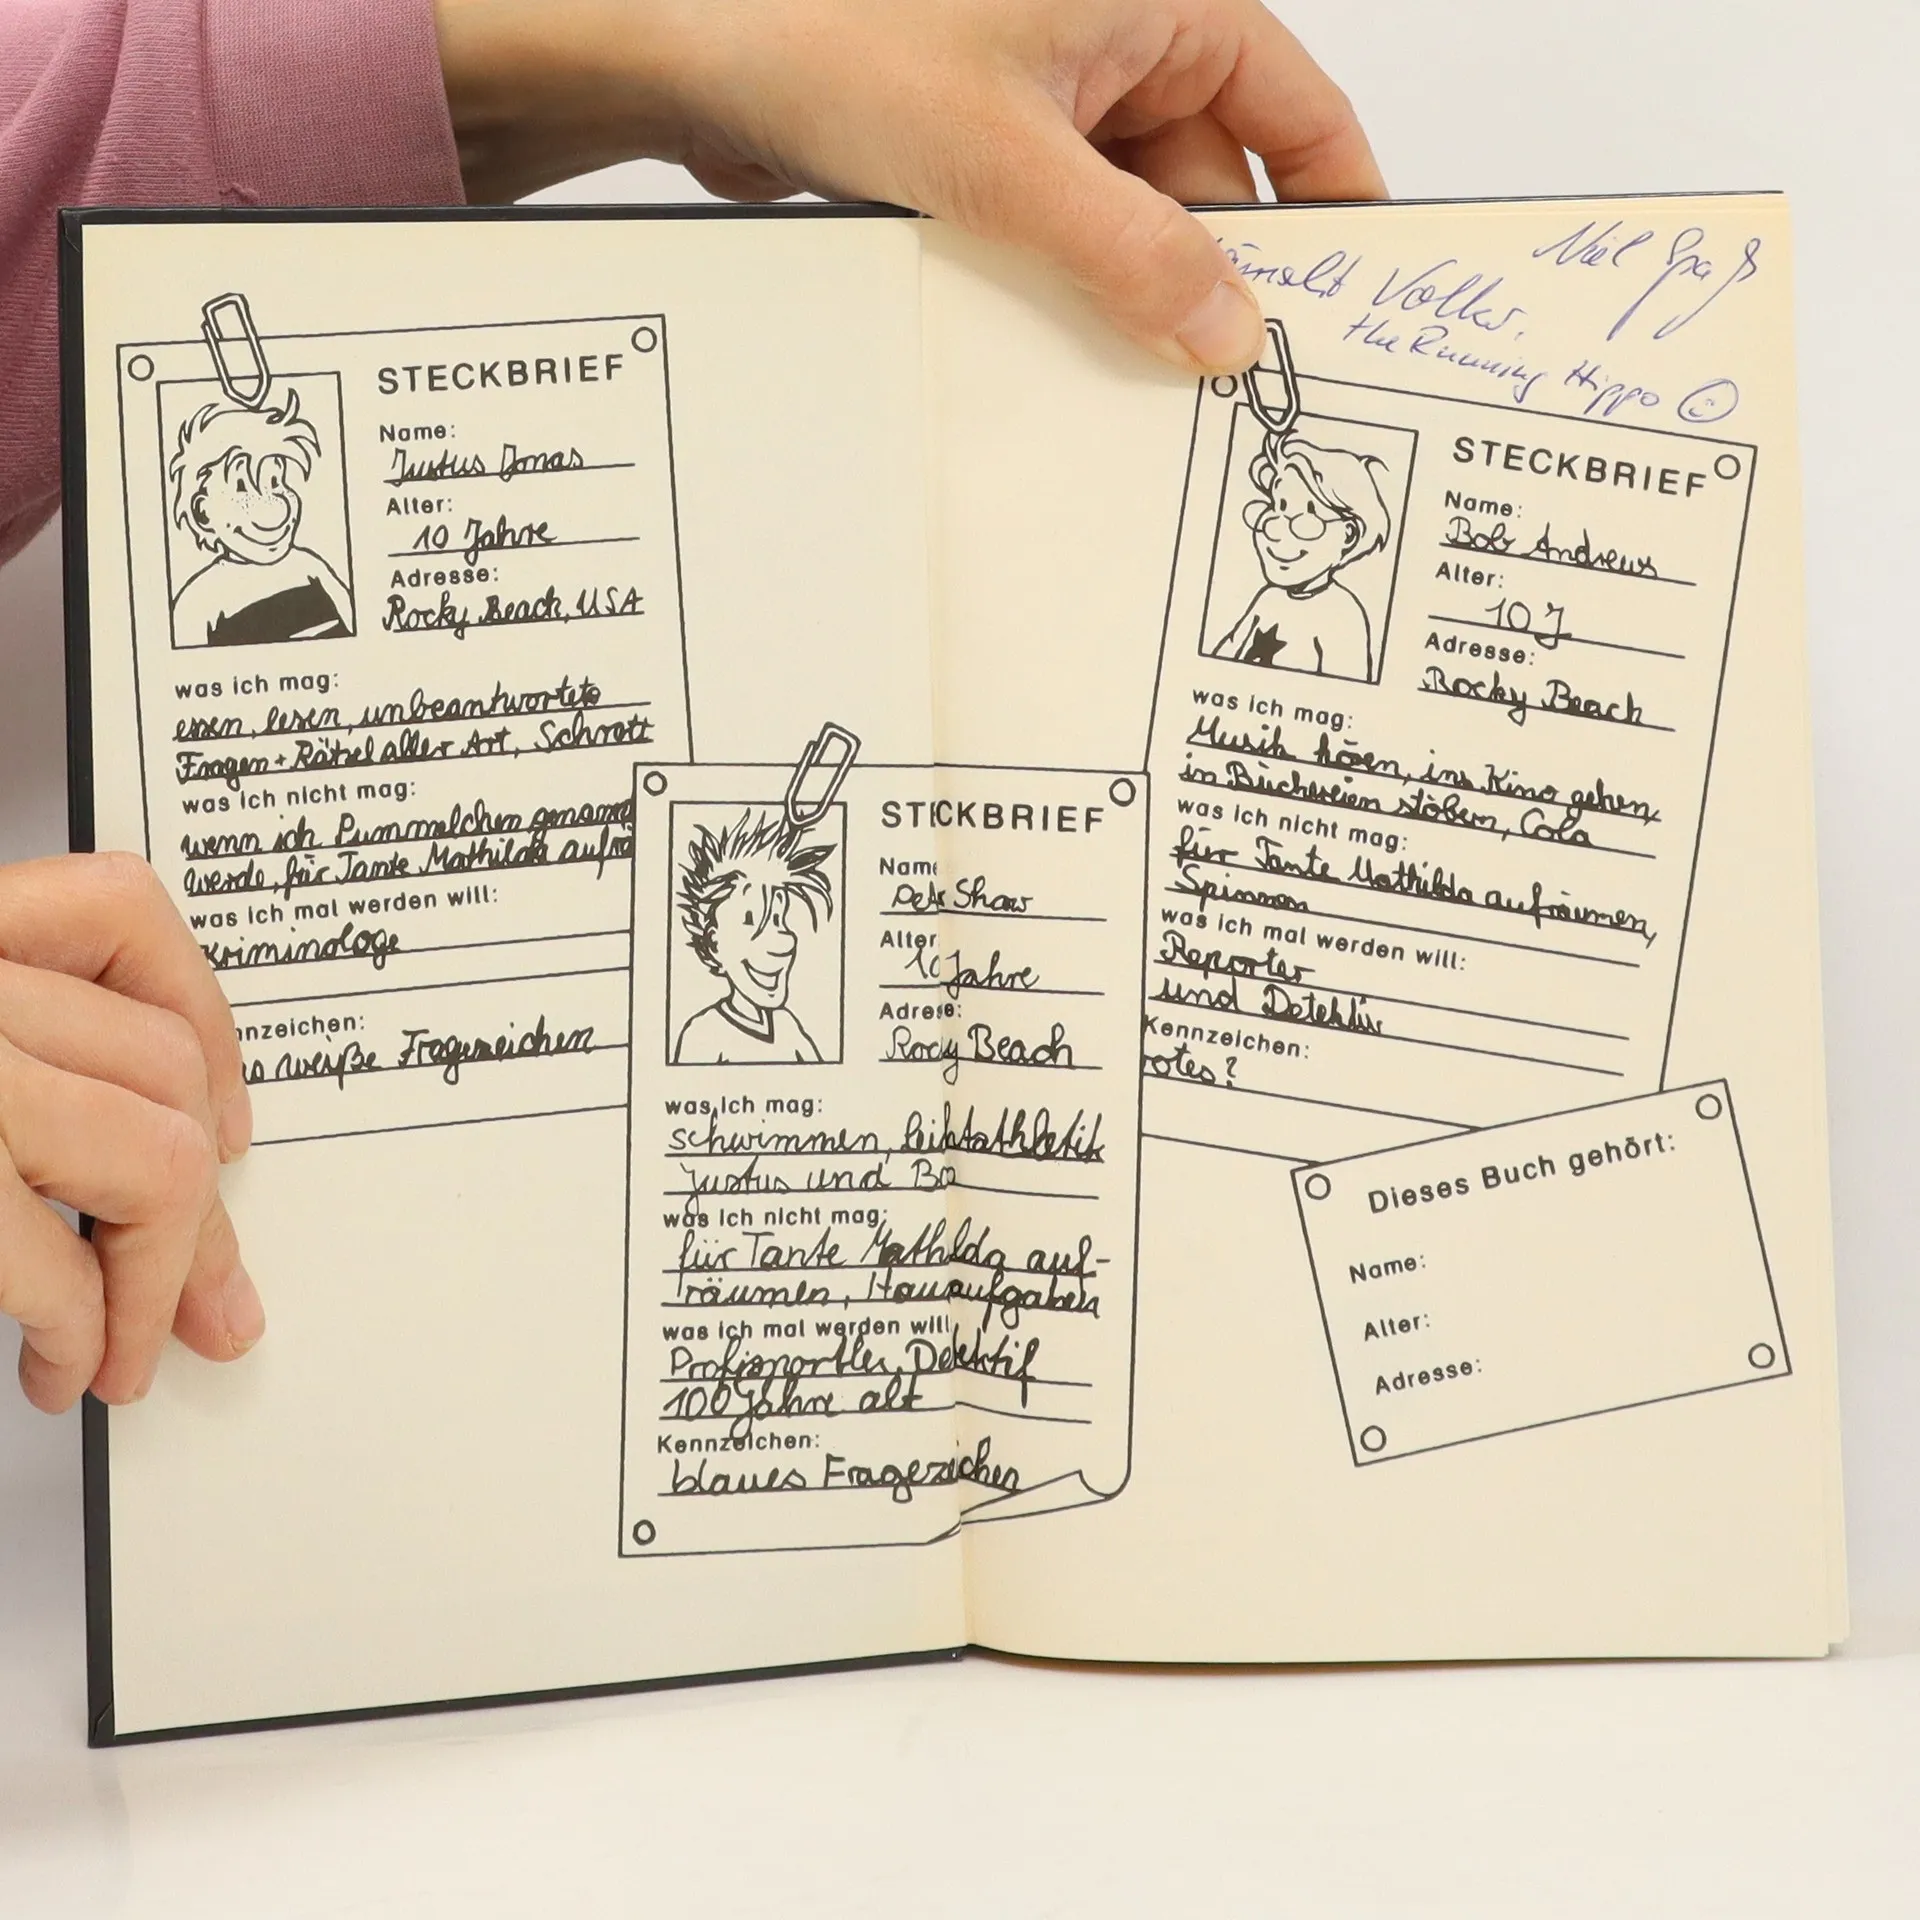 STECKBRIEF
Name:
Justus Jonas
Alter:
10 Jahre
Adresse:
Rocky Beach, USA
was ich mag:
essen, lesen, unbeantwortete
Fragen + Rätsel aller Art, Schrott
was ich nicht mag:
wenn ich Pummelchen genannt
werde, für Tante Mathilda aufrä
was ich mal werden will:
Kriminologe
nnzeichen:
weiße Fragezeichen
STECKBRIEF
Name
Peter Shaw
Alter
10 Jahre
Adresse:
Rocky Beach
was ich mag:
schwimmen, Leichtathletik
Justus und Bo
was ich nicht mag:
für Tante Mathilda auf-
räumen, Hausaufgaben
was ich mal werden will
Profisportler, Detektif
100 Jahre alt
Kennzeichen:
blaues Fragezeichen
Viel Spaß
Volker,
the Running Hippo
STECKBRIEF
Name:
Bob Andrews
Alter:
10 J
Adresse:
Rocky Beach
was ich mag:
Musik hören, ins Kino gehen,
in Büchereien stöbern, Cola
was ich nicht mag:
für Tante Mathilda aufräumen,
Spinnen
was ich mal werden will:
Reporter
und Detektiv
Kennzeichen:
rotes ?
Dieses Buch gehört:
Name:
Alter:
Adresse: